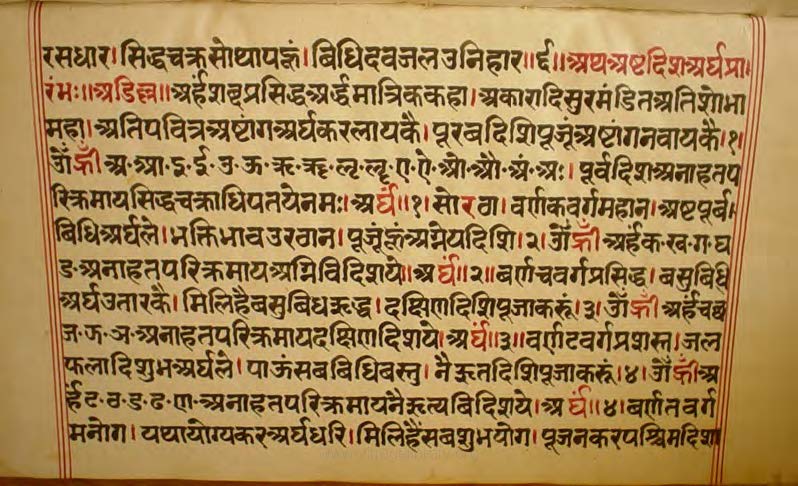 रसधार। सिद्धचक्रसोथापऊं। बिधिदवजलउनिहार॥ई॥अथअष्टदिशअर्घप्रा।
रंमः॥अडिल्ल॥अर्हंशबप्रसिद्धअर्द्धमात्रिककहा। अकारादिसुरमंडितअतिशोभा
महा। अतिपवित्रअष्टांगअर्घकरलायकै। पूरबदिशिपूजूंअष्टांगनवायकै।१।
ॐह्रीं अ·आ·इ·ई·उ·ऊ·ऋ·ॠ·ऌ·ॡ·ए·ऐ·ओ·औ·अं·अः। पूर्वदिशअनाहतप
रिक्रमायसिद्धचक्राधिपतयेनमः।अर्घं॥१। सोरठा। वर्णकवर्गमहान। अष्टपूर्बा
बिधिअर्घले। भक्तिभावउरठान। पूजूंहूंअग्नेयदिशि।२। ॐह्रीं अर्हंक·ख·ग·घ
ङ·अनाहतपरिक्रमायअग्निविदिशये।अर्घं॥२॥बर्णचवर्गप्रसिद्ध। बसुबिधि
अर्घउतारकै। मिलिहैबसुबिधऋद्ध। दक्षिणदिशिपूजाकरूं।३। ॐह्रीं अर्हंचछ
ज·ऊ·ञ·अनाहतपरिक्रमायदक्षिणदिशये।अर्घं॥३॥वर्णटवर्गप्रशस्त। जल
फलादिशुभअर्घले। पाऊंसबबिधिबस्तु। नैऋतदिशिपूजाकरूं।४। ॐह्रींअ
र्हंट·ठ·ड·ढ·ण·अनाहतपरिक्रमायनैऋत्यबिदिशये।अर्घं॥४। बर्णतवर्ग
मनोग। यथायोग्यकरअर्घधरि। मिलिहैंसबशुभयोग। पूजनकरपश्चिमदिशा